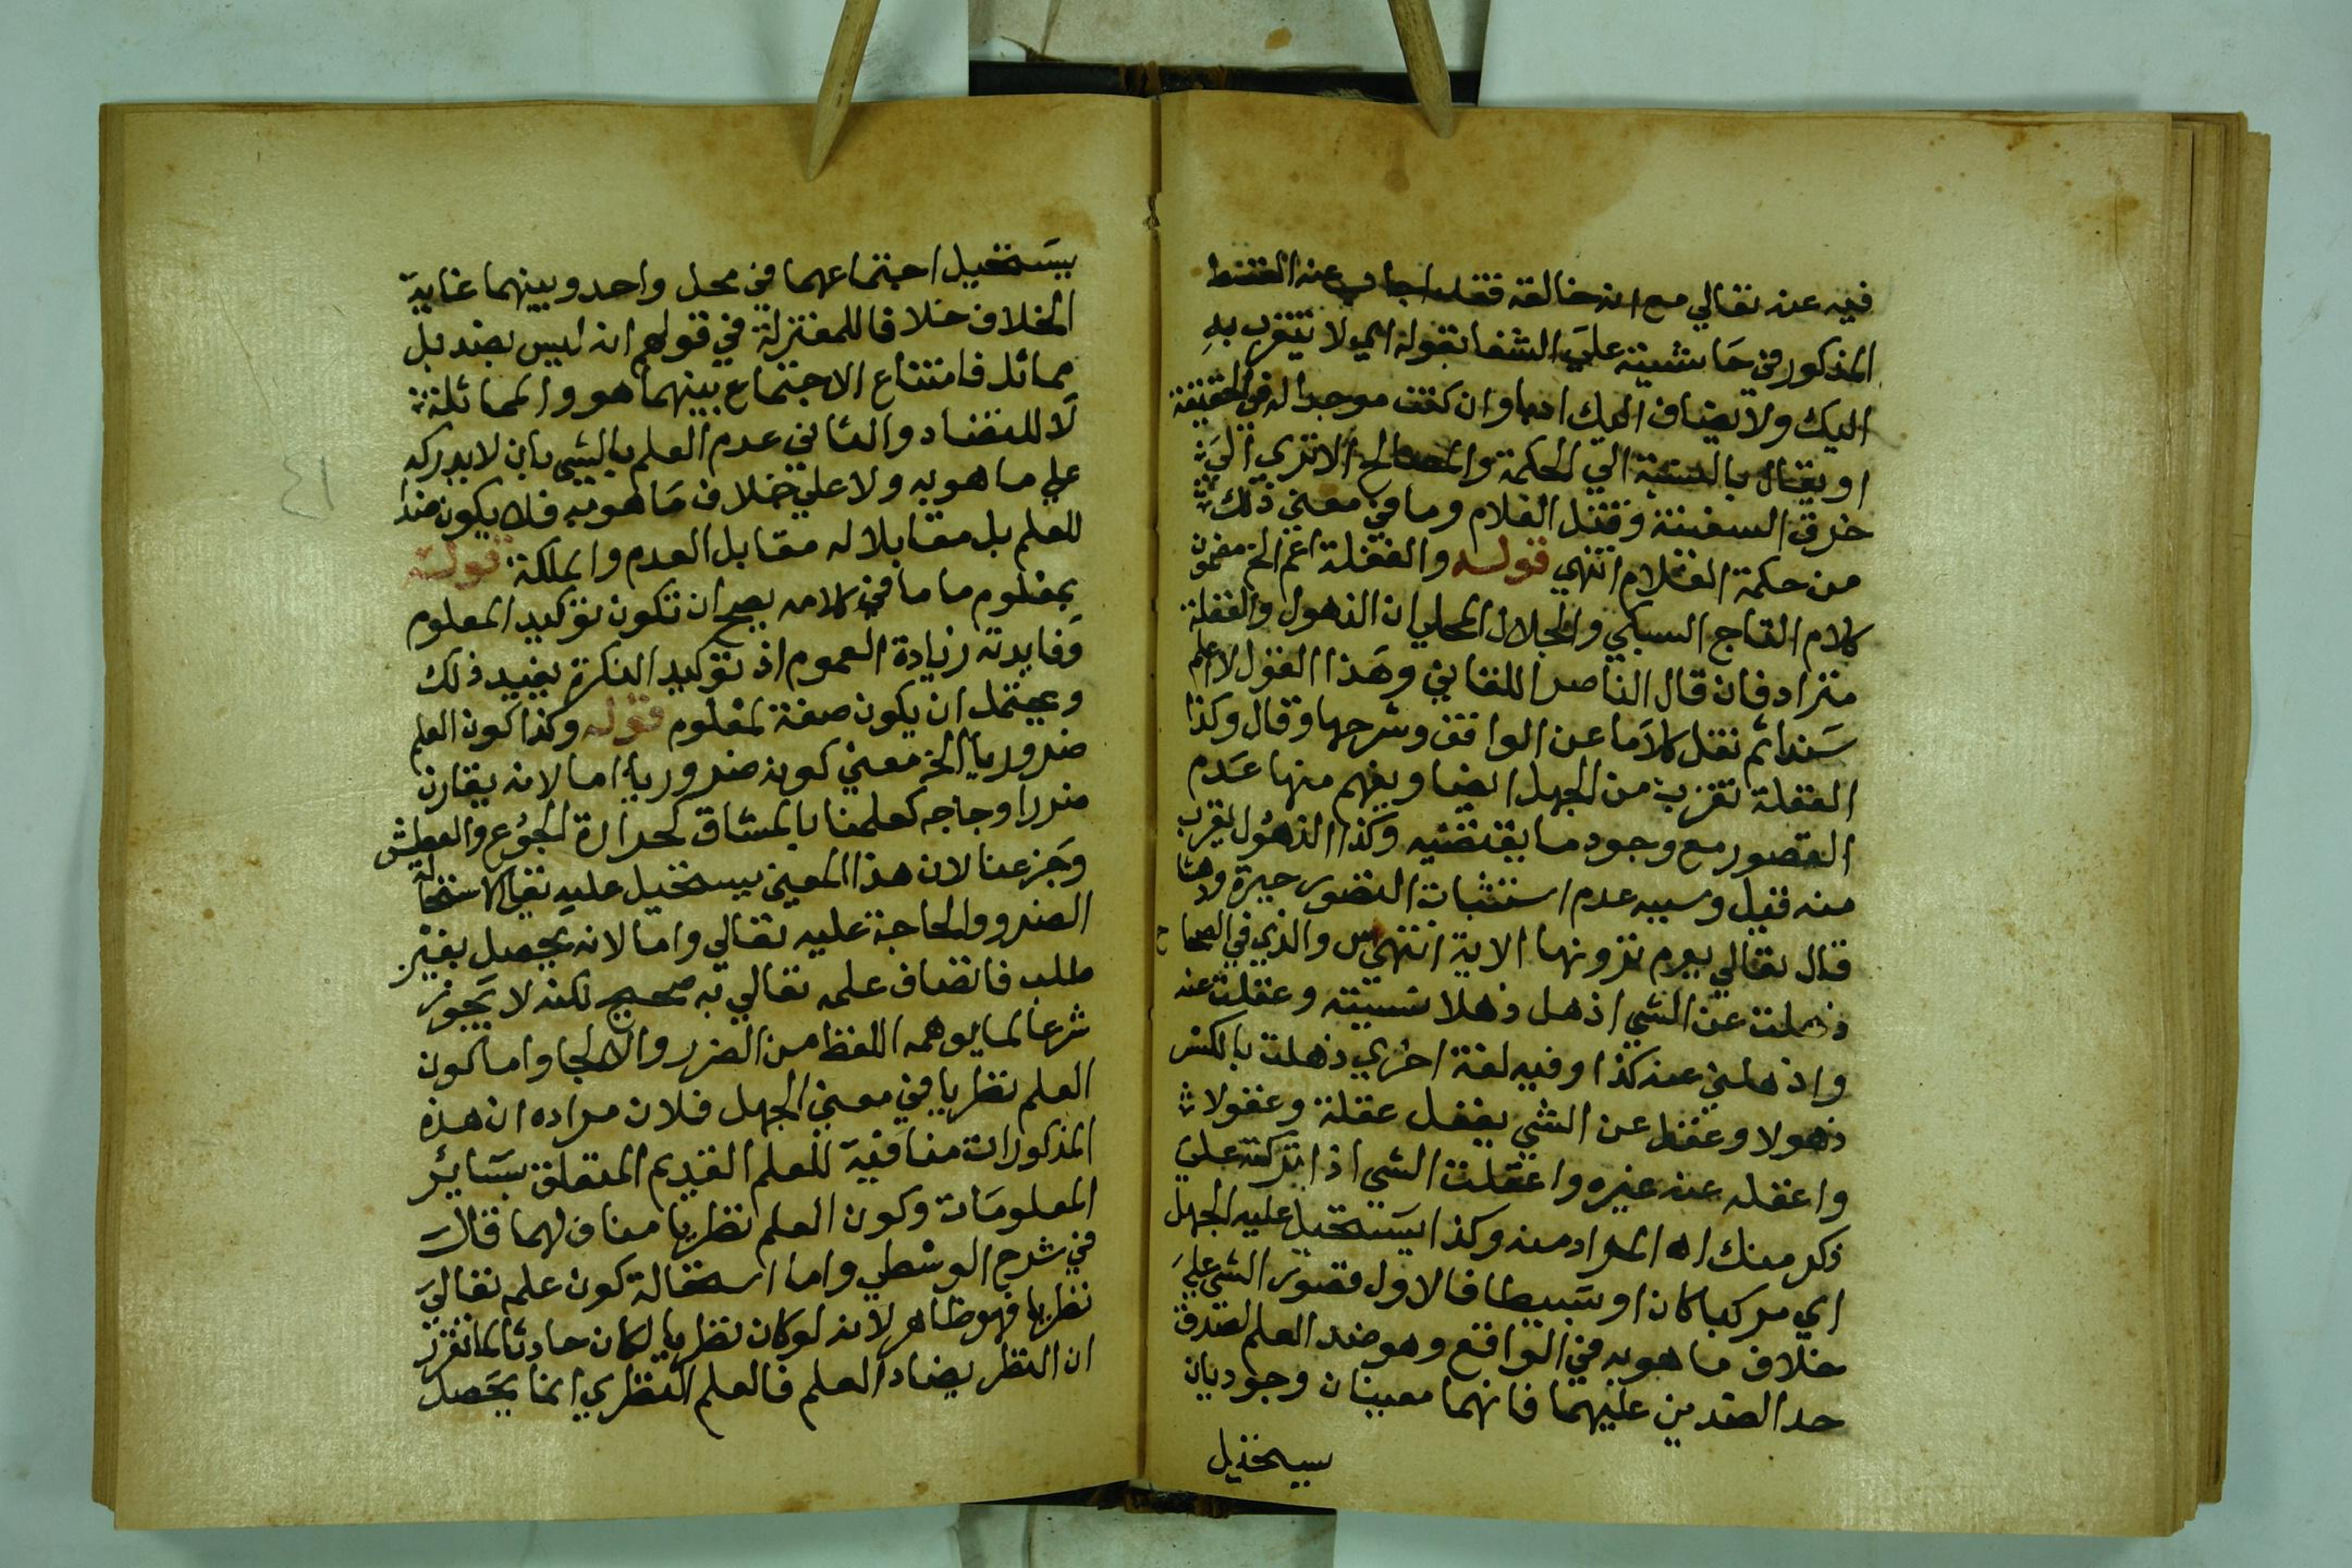 فيه عنه تعالي مع انه خالقه فقد اجاب عنه القسط
المذكور في حاشيته علي الشفا بقوله اي لا يتقرب به
اليك ولا يضاف اليك ادبا وان كنت موجدا له في الحقيقة
او يقال بالنسبة الي الحكمة والمصالح الا تري الي
خرق السفينة وقتل الغلام وما في معني ذلك
من حكمة العلام انتهي قوله والغفلة اعم الخ مضمون
كلام التاج السبكي والجلال المحلي ان الذهول والغفلة
مترادفان قال الناصر اللقاني وهذا القول لا اعلم
سندا ثم نقل كلاما عن المواقف وشرحها وقال وكذا
الغفلة تقرب من الجهل ايضا ويفهم منها عدم
التصور مع وجود ما يقتضيه وكذا الذهول يقرب
منه قيل وسببه عدم استثبات التصور حيرة ودهشا
قال تعالي يوم ترونها الاية انتهي س والذي في الصحاح
ذهلت عن الشي اذهل ذهلا نسيته وغفلت عنه
واذهلني عنه كذا وفيه لغة اخري ذهلت بالكسر
ذهولا وغفل عن الشي يغفل غفلة وغفولا
واغفله عنه غيره واغفلت الشي اذا تركته علي
ذكر منك اه المراد منه وكذا يستحيل عليه الجهل
اي مركبا كان او بسيطا فالاول تصور الشي علي
خلاف ما هو به في الواقع وهو ضد العلم لصدق
حد الضدين عليهما فانهما معنيان وجوديان
يستحيل
يستحيل اجتماعهما في محل واحد وبينهما غاية
الخلاف خلافا للمعتزلة في قولهم انه ليس بضد بل
مماثل فامتناع الاجتماع بينهما هو والمماثلة
لا للتضاد والثاني عدم العلم بالشي بان لا يدركه
علي ما هو به ولا علي خلاف ما هو به فلا يكون ضدا
للعلم بل مقابلا له مقابل العدم والملكة قوله
بمعلوم ما ما في كلامه يصح ان تكون توكيد المعلوم
وفايدته زيادة العموم اذ توكيد النكرة يفيد ذلك
ويحتمل ان يكون صفة لمعلوم قوله وكذا كون العلم
ضروريا الخ معني كونه ضروريا اما لانه يقارن
ضررا وحاجه كعلمنا بالمشاق كحرارة الجوع والعطش
وجزعنا لان هذا المعني يستحيل عليه تعالي لاستحالة
الضرر والحاجة عليه تعالي واما لانه يحصل بغير
طلب فاتصاف علمه تعالي به صحيح لكنه لا يجوز
شرعا لما يوهمه اللفظ من الضرر والالجا واما كون
العلم نظريا في معني الجهل فلان مراده ان هذه
المذكورات منافية للعلم القديم المتعلق بساير
المعلومات وكون العلم نظريا مناف لهما قال
في شرح الوسطي واما استحالة كون علمه تعالي
نظريا فهو ظاهر لانه لو كان نظريا لكان حادثا لما تقرر
ان النظر يضاد العلم فالعلم النظري انما يحصل
٤١